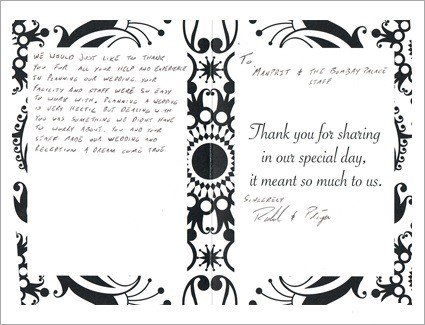 WE WOULD JUST LIKE TO THANK
YOU FOR ALL YOUR HELP AND EXPERIENCE
IN PLANNING OUR WEDDING. YOUR
FACILITY AND STAFF WERE SO EASY
TO WORK WITH. PLANNING A WEDDING
IS VERY HECTIC BUT DEALING WITH
YOU WAS SOMETHING WE DIDN'T HAVE
TO WORRY ABOUT. YOU AND YOUR
STAFF MADE OUR WEDDING AND
RECEPTION A DREAM COME TRUE.
TO
MANPRIT & THE BOMBAY PALACE
STAFF
Thank you for sharing
in our special day,
it meant so much to us.
SINCERELY
& Priya